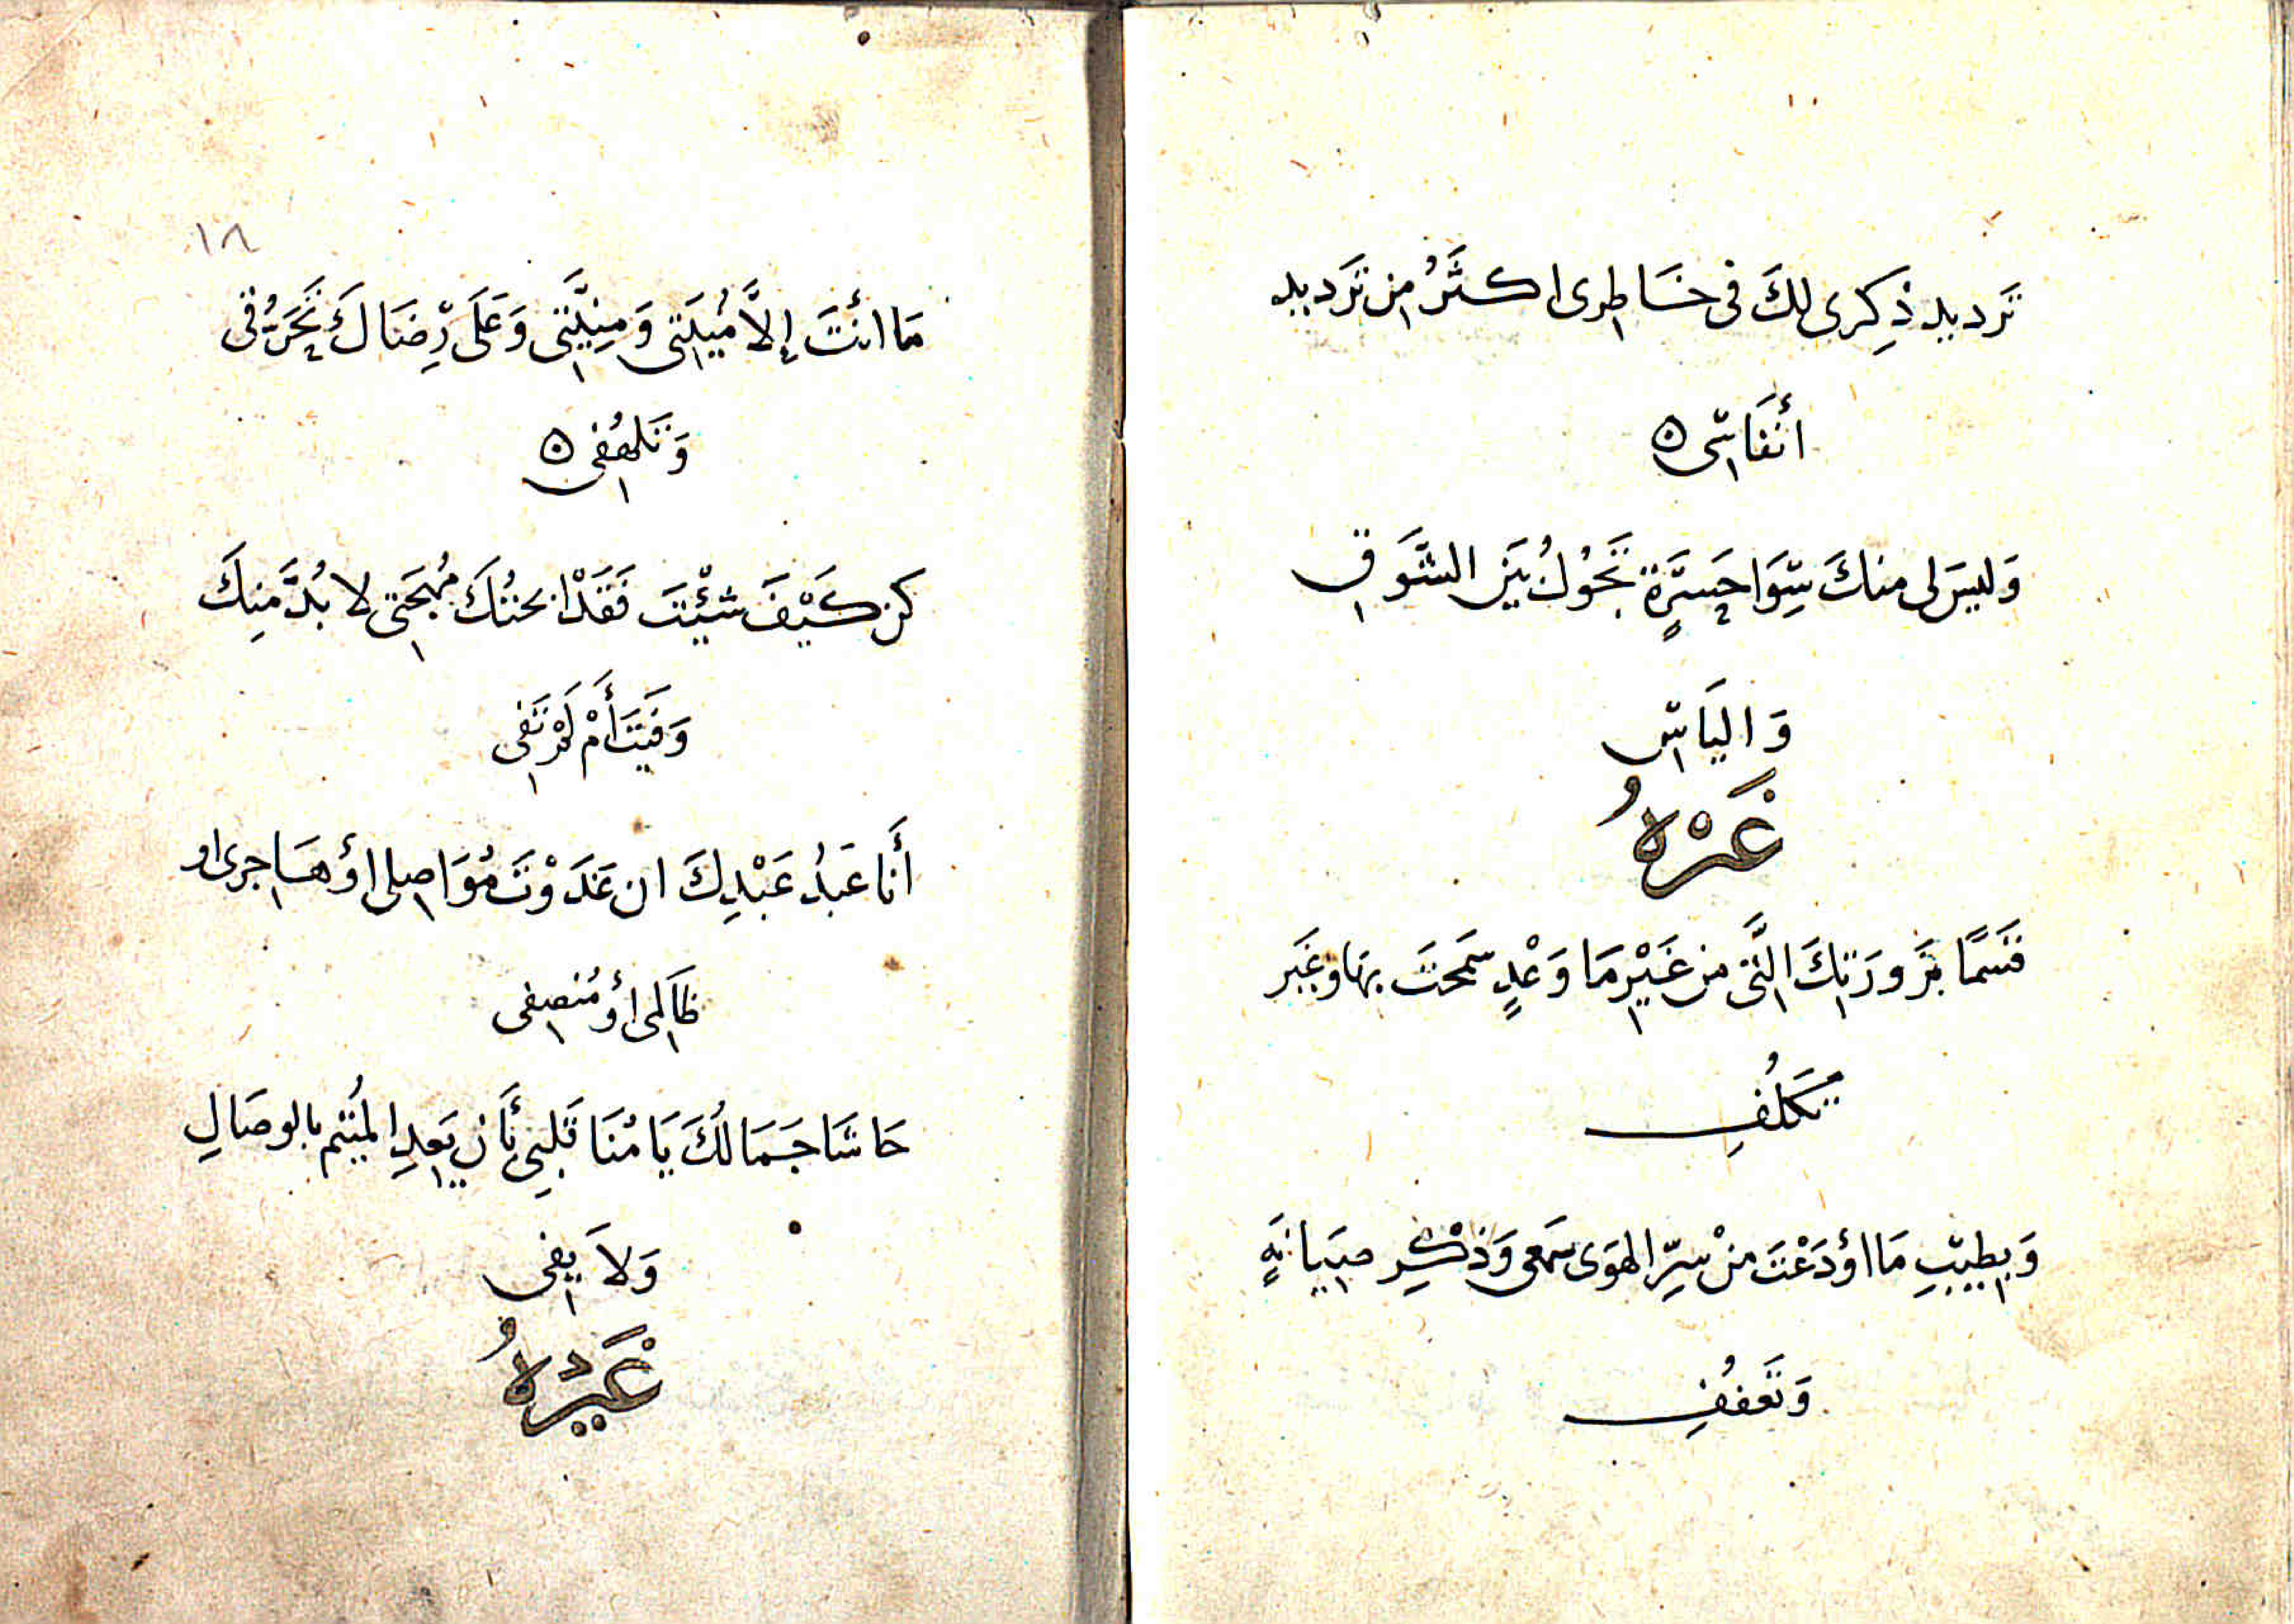 تَرديد ذِكرى لكَ فى خَاطرى اكثَرُ من تَرديد
أنفَاسى ٥
وَليسَ لى منكَ سِوَا حَسرَةٍ تَحُولُ بَين الشَوق
وَاليَاس
غَيْرهُ
قسَمًا بزَورَتِكَ الَّتى من غَيْرِ مَا وَعْدٍ سَمَحتَ بهَا وغَير
تَكَلُفِ
وَبِطيبِ مَا اوْدَعْتَ مِنْ سِرِّ الهَوَى سَمعى وَذكْرِ صيَانَةٍ
وَتَعَفُفِ
١٨
مَا انتَ إلاَّ مُنيَتى وَمنِيَّتى وَعَلَى رِضَاكَ تَحَرُّقى
وَتَلهُفى ٥
كن كَيْفَ شئْتَ فَقَدْ ابحتُكَ مُهجَتى لا بُدَّ مِنكَ
وَفَيتَ أَمْ لَمْ تَفى
أَنا عَبدُ عَبْدِكَ ان غَدَوْتَ مُوَاصلى اوْ هَاجرى او
ظَالمى اوْ مُنصِفى
حَاشَا جَمَالكَ يَا مُنَا قَلبى بأَن يَعِدِ المُتيم بالوصَالِ
وَلاَ يفى
غَيْرهُ